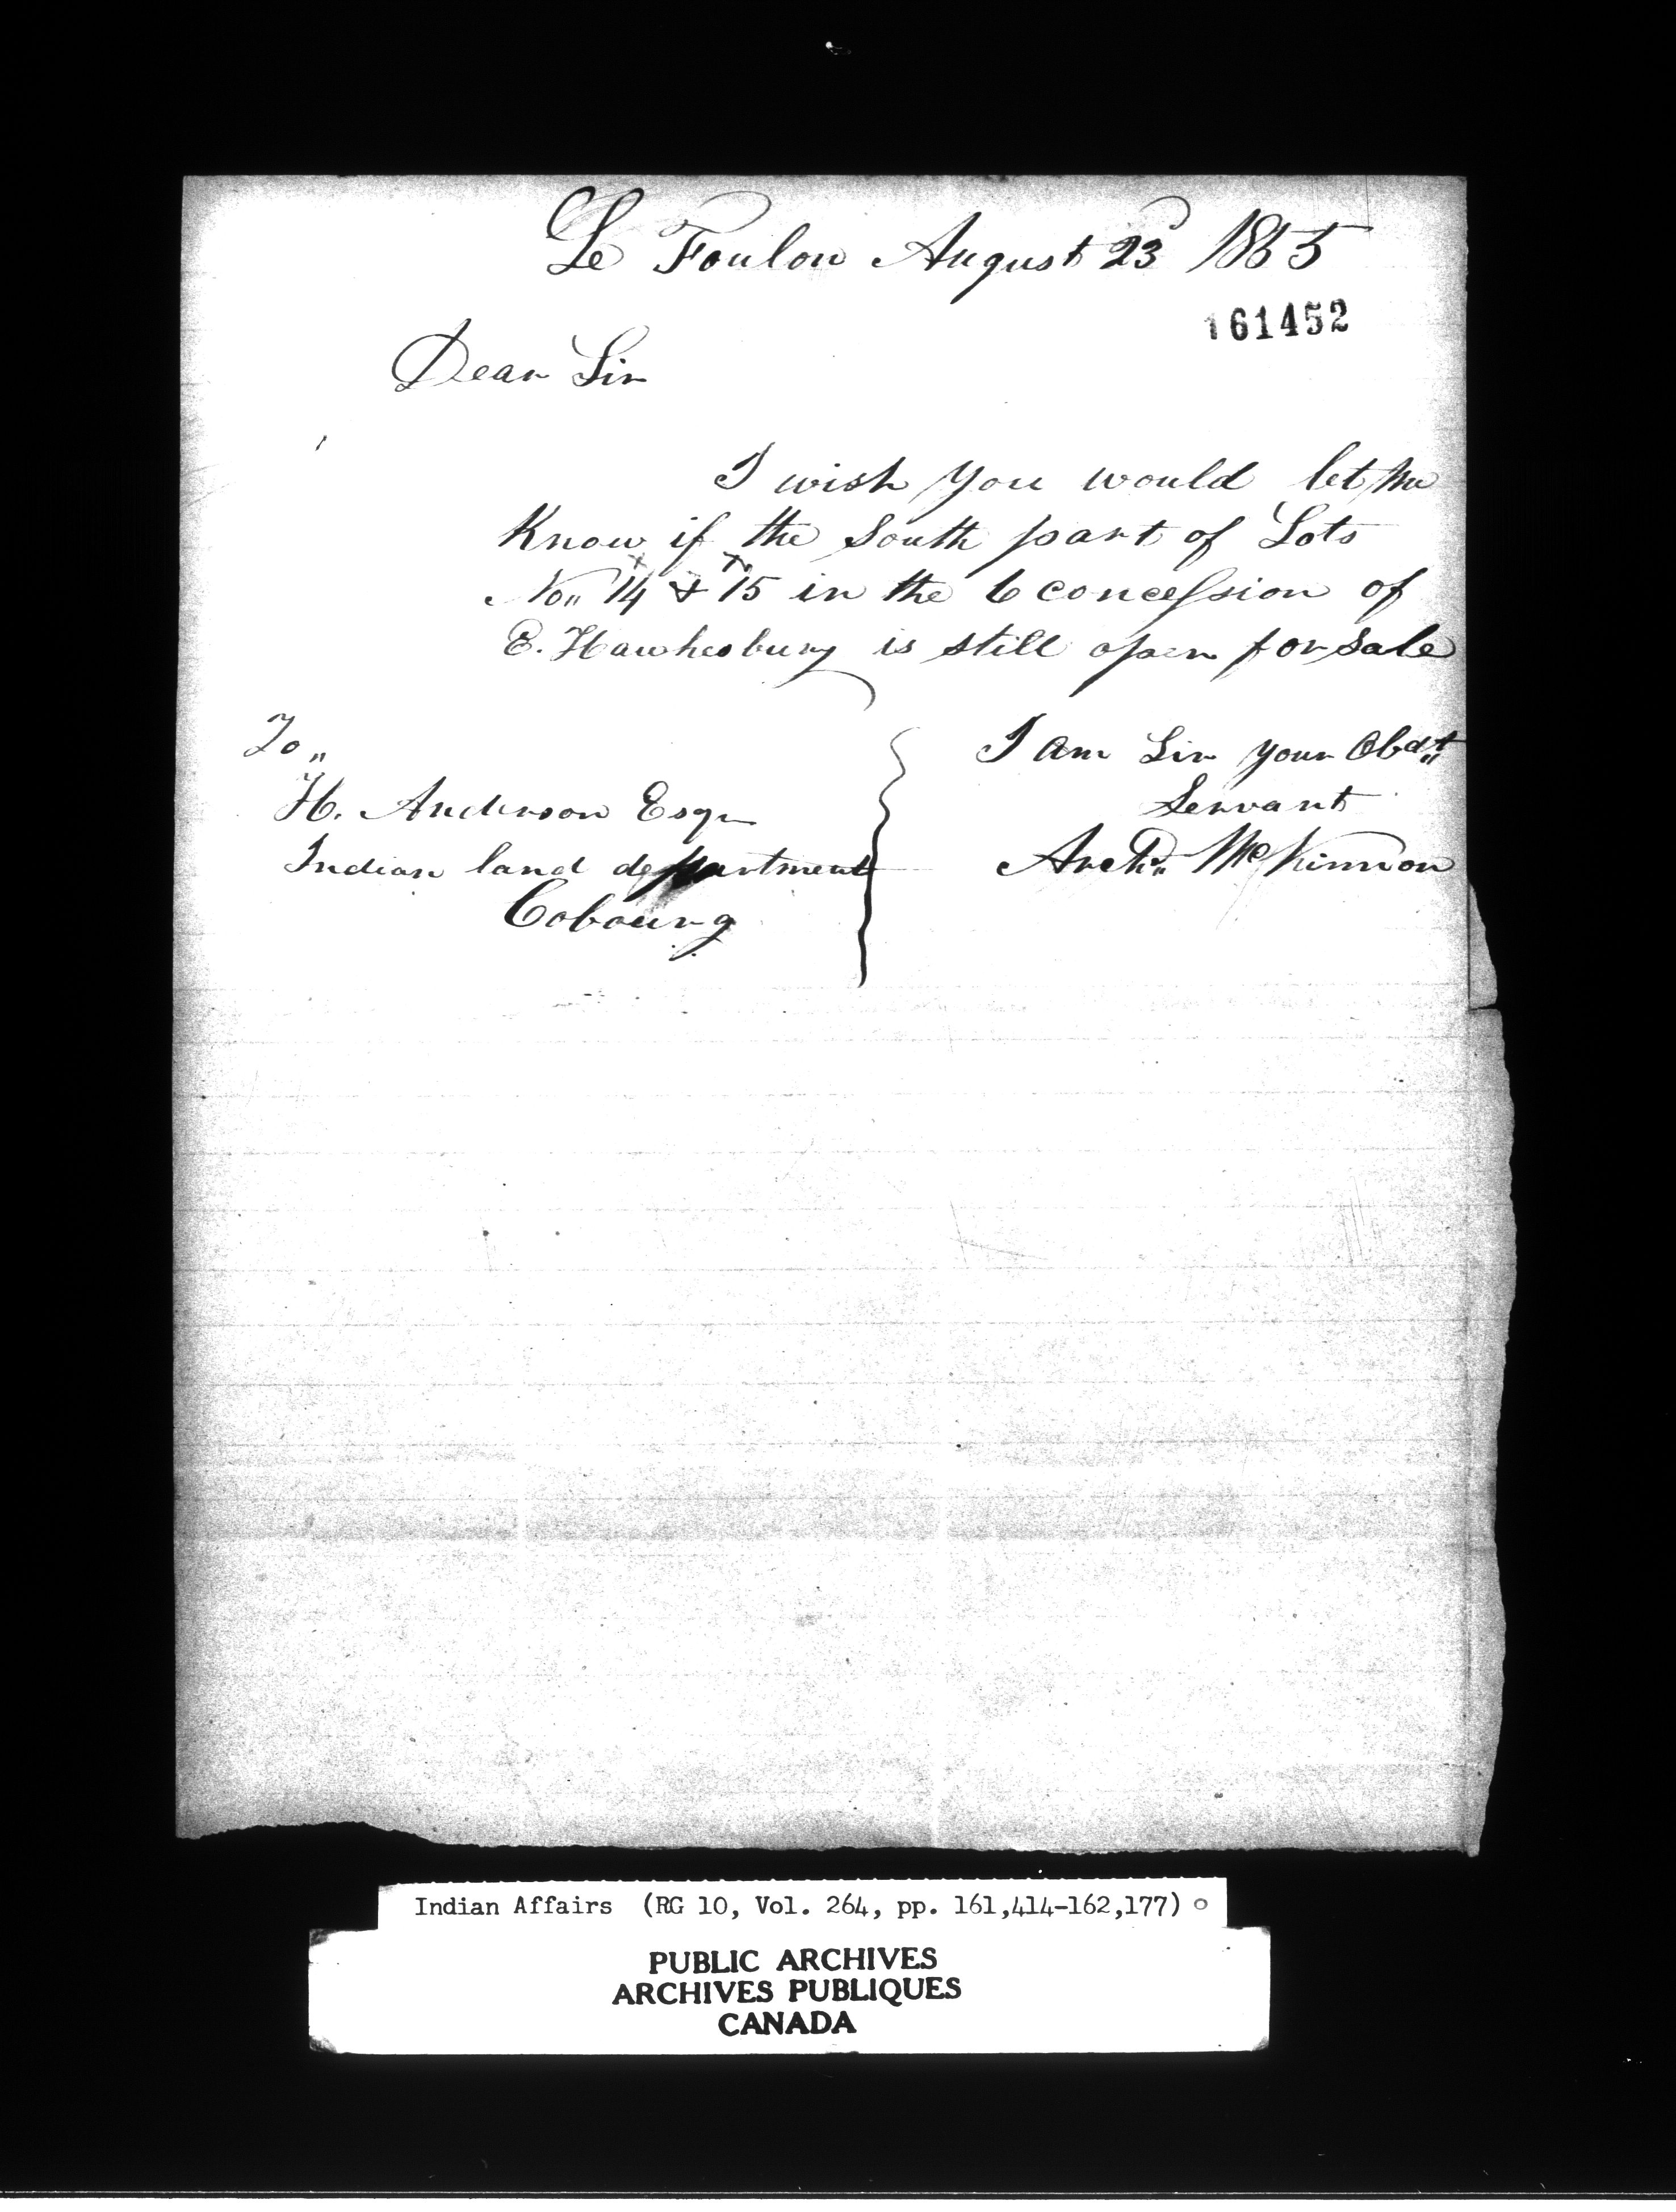 Le Foulon August 23d 1865
161452
Dear Sir
I wish you would let me
Know if the South part of Lots
No,, 14 & 15 in the 6 concession of
E. Hawkesbury is still open for sale
To,,
H. Anderson Esqr
Indian land department
Cobourg
I am Sir your Obdt,,
Servant
Archd,, McKinnon
Indian Affairs (RG 10, Vol. 264, pp. 161,414-162,177)
PUBLIC ARCHIVES
ARCHIVES PUBLIQUES
CANADA